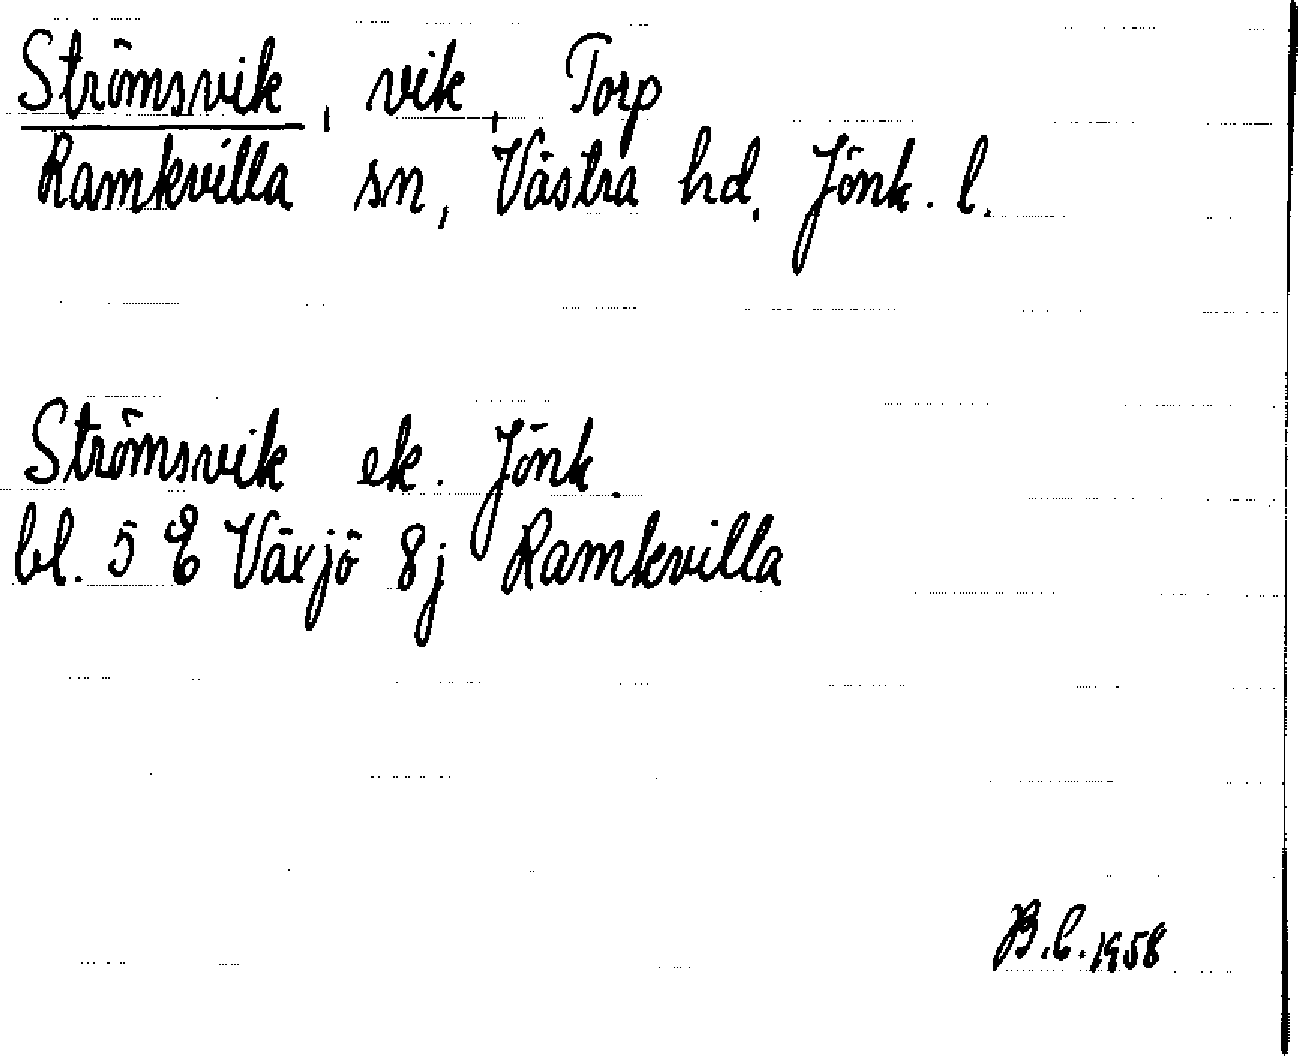 Strömsvik, vik, Torp
Ramkvilla sn, Västra hd. Jönk. l.
Strömsvik ek. Jönk.
bl. 5 E Växjö 8j Ramkvilla
B.C. 1958